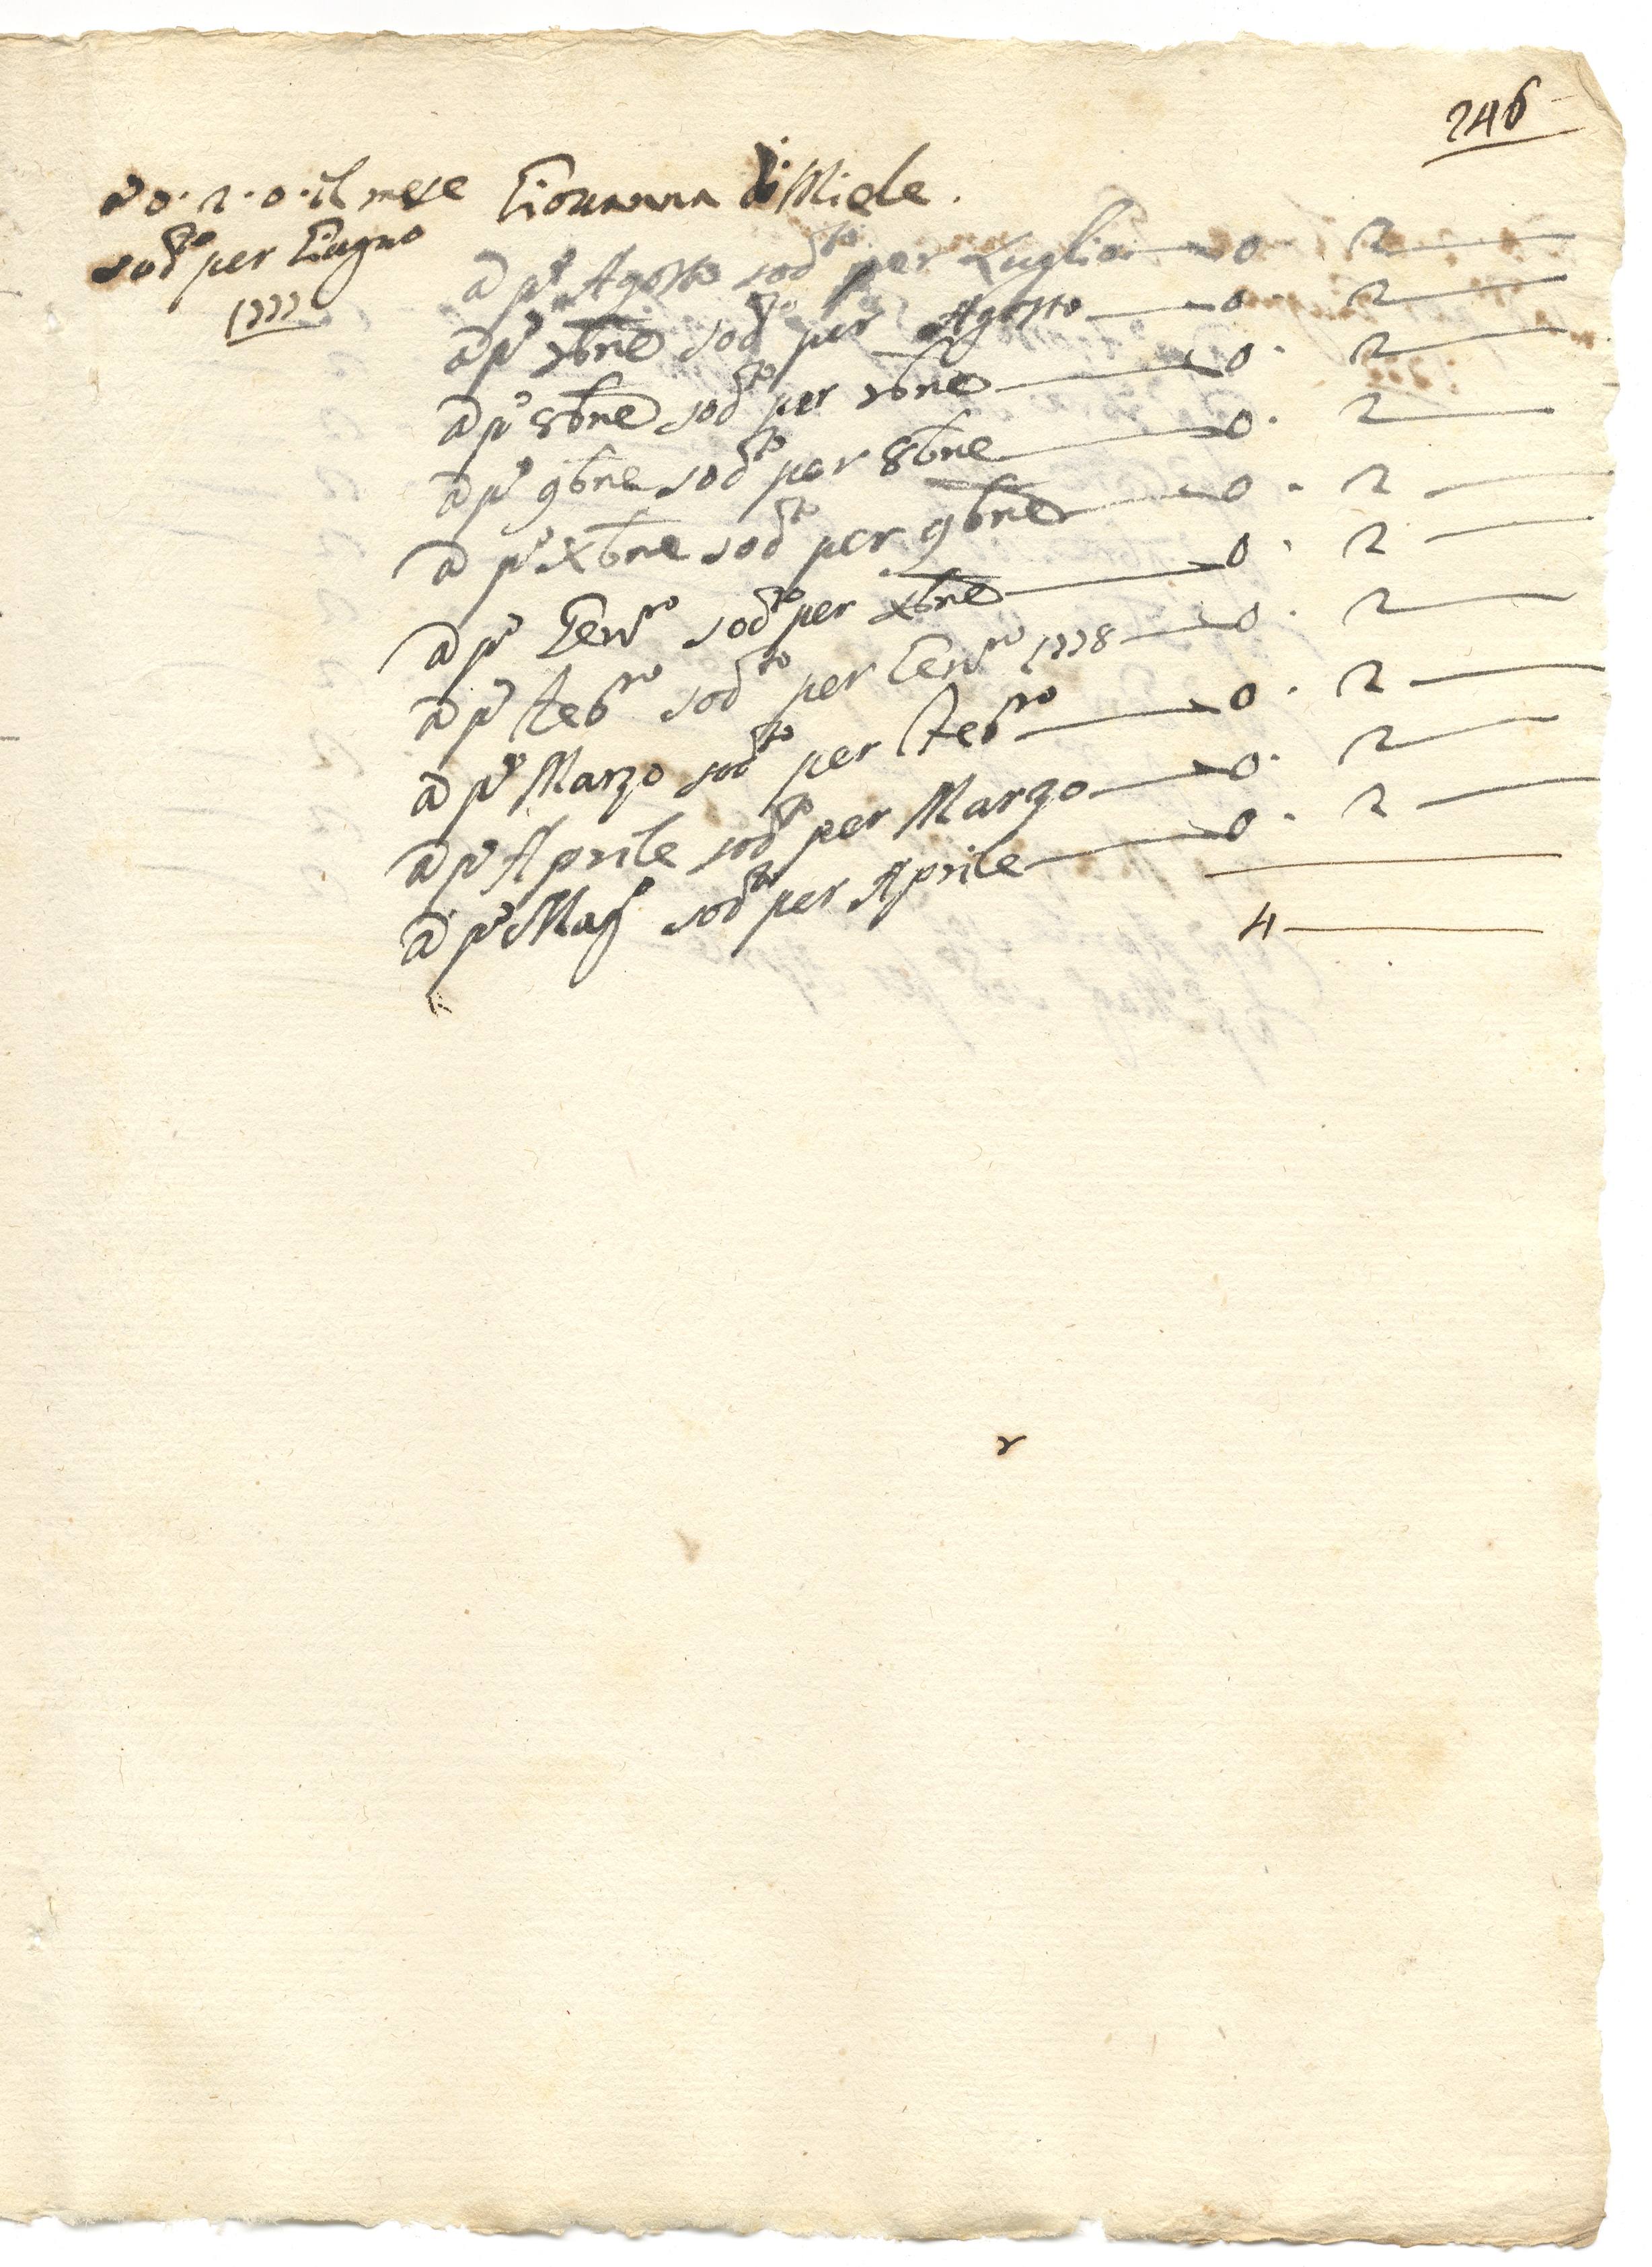 246
a 0.2.0. il mese Giovanna di Miele.
sod.to per Giugno
1777
a p.o Agosto sod.to per Luglio — 0. 2 —
a p.o 7bre sod.to per Agosto — 0. 2 —
a p.o 8bre sod.to per 7bre — 0. 2 —
a p.o 9bre sod.to per 8bre — 0. 2 —
a p.o Xbre sod.to per 9bre — 0. 2 —
a p.o Genn.ro sod.to per Xbre — 0. 2 —
a p.o Feb.ro sod.to per Genn.ro 1778 — 0. 2 —
a p.o Marzo sod.to per Feb.ro — 0. 2 —
a p.o Aprile sod.to per Marzo — 0. 2 —
a p.o Mag.o sod.to per Aprile — 0. 2 —
4 —